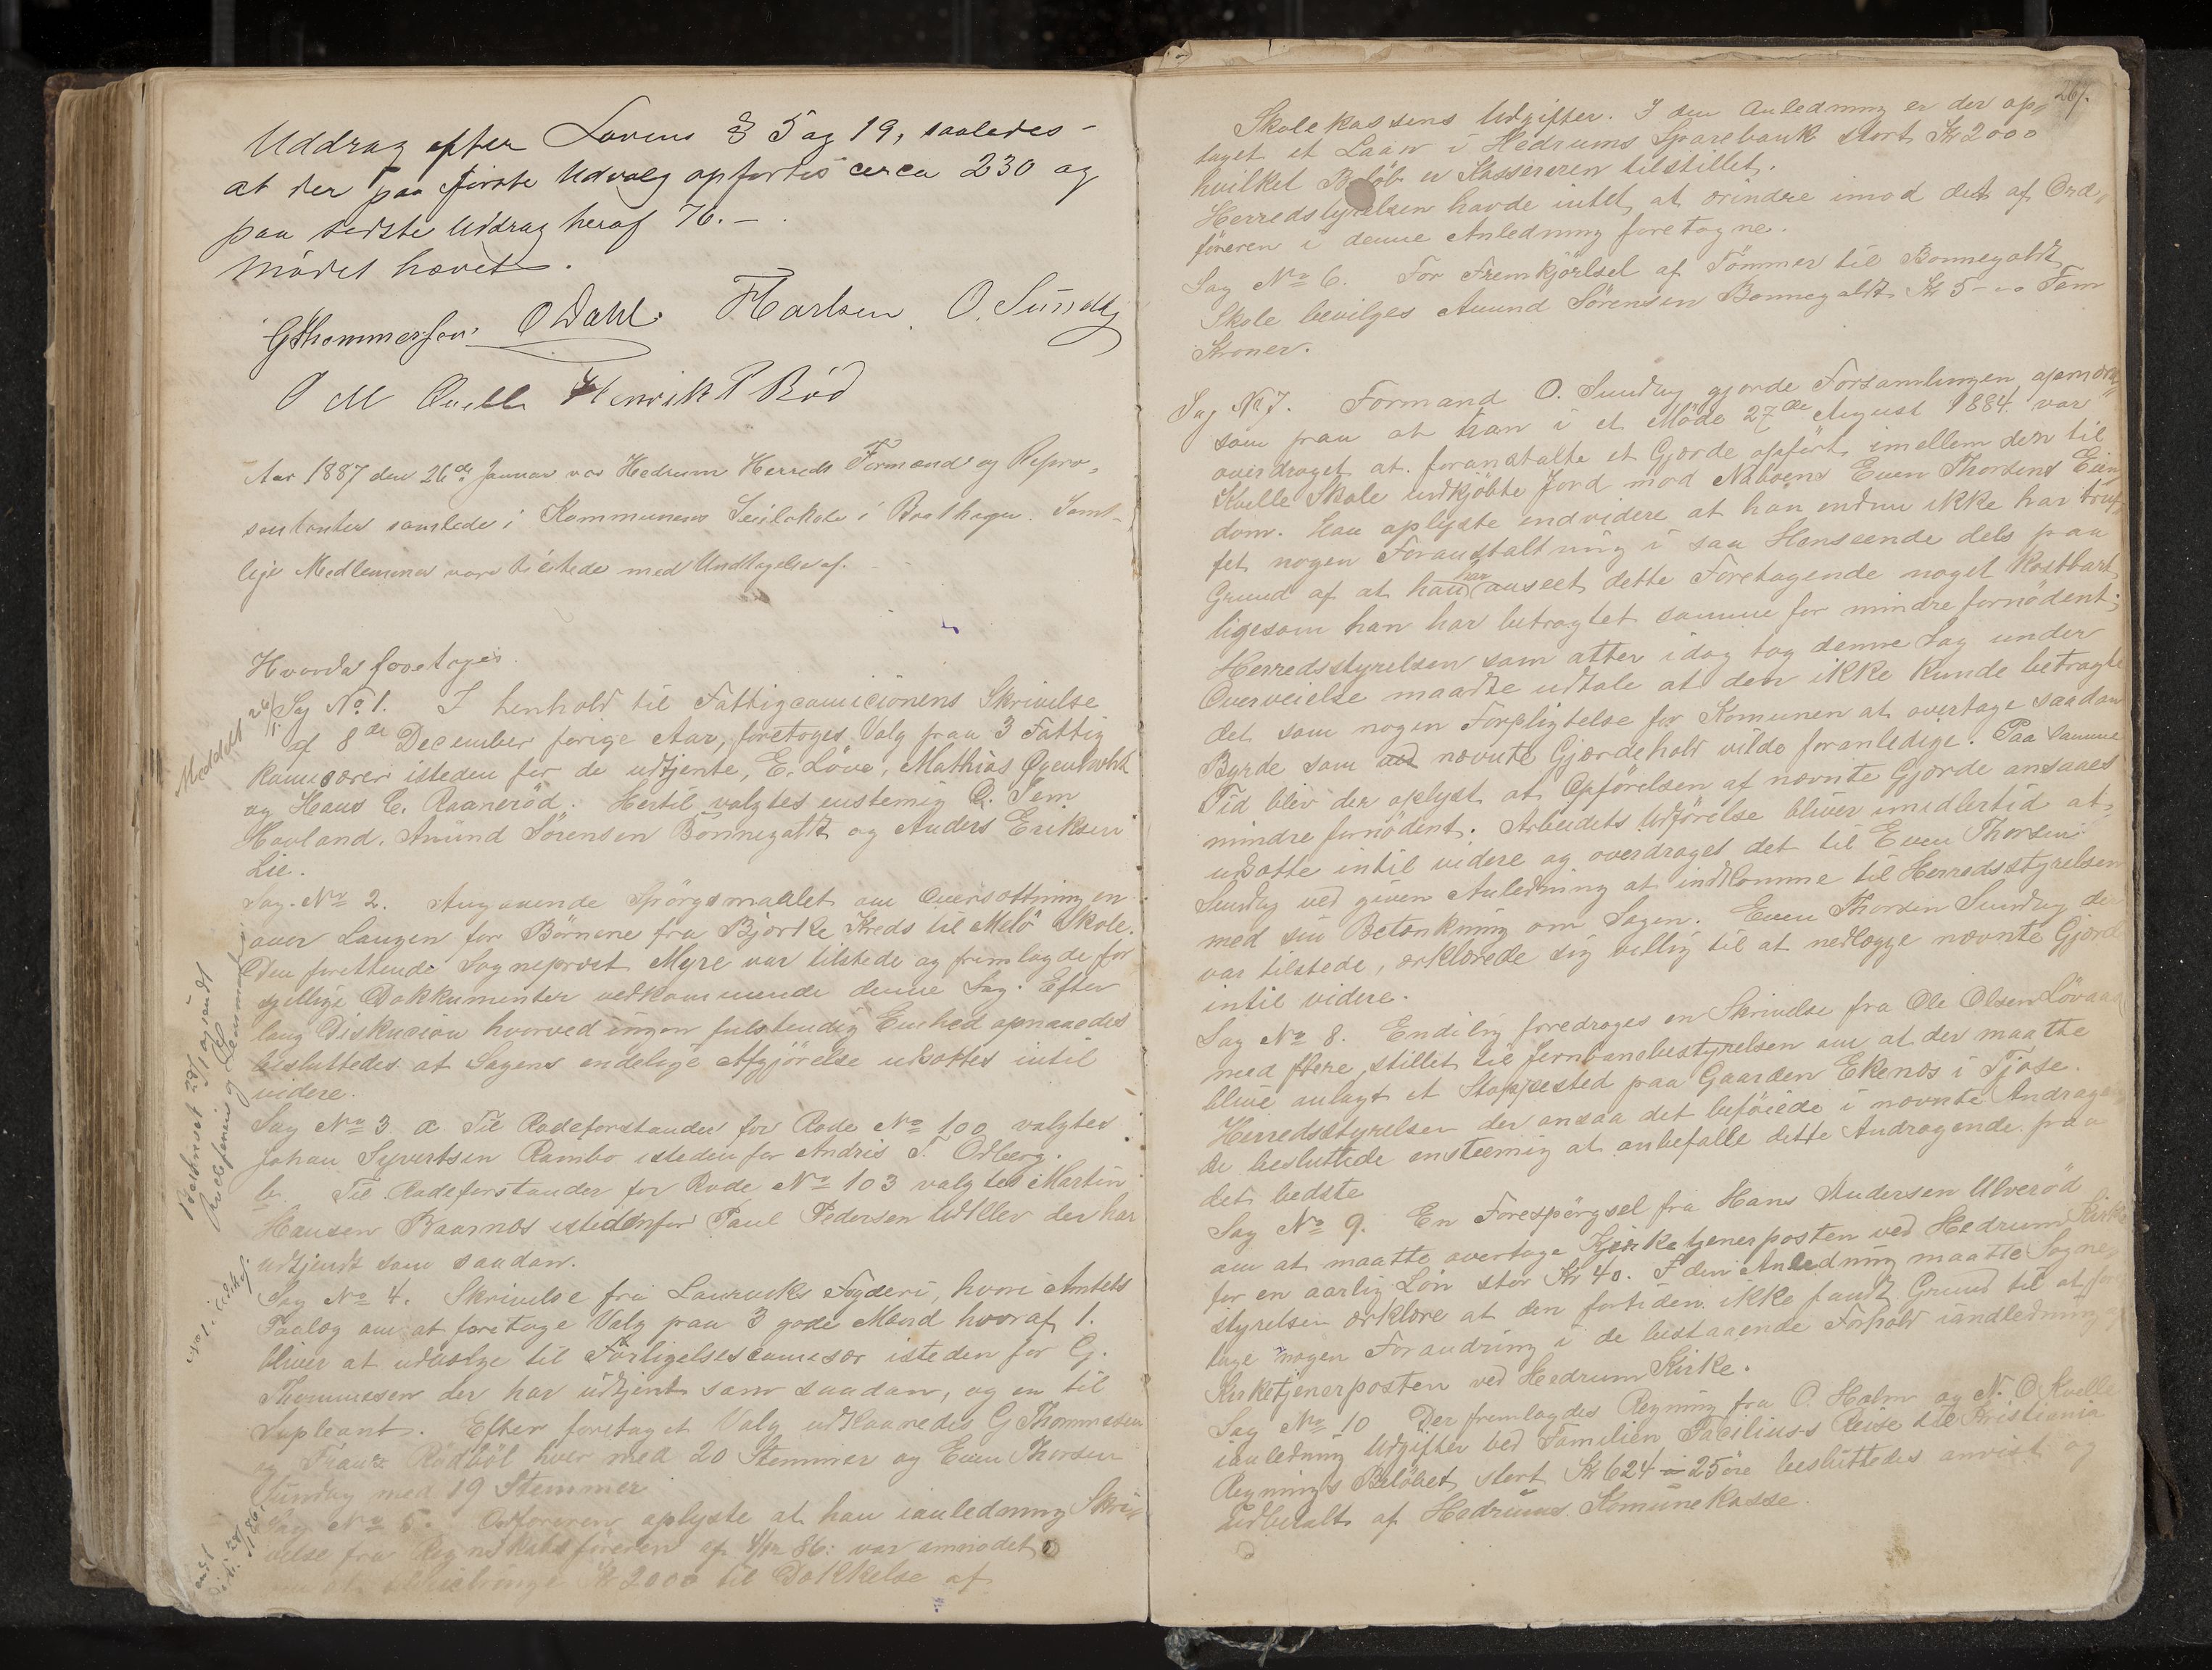 Uddrag efter Lovens § 5 og 19, saaledes
at der paa første Udvalg opførtes circa 230 og
paa sidste Uddrag heraf 76. –
Mødet hævet.
GThommesen. O Dahl. FKarlsen. O. Sundby
O M Qvelle Henrik P Bød
Aar 1887 den 26de Januar var Hedrum Herreds Formænd og Repræ-
sentanter samlede i Kommunens Leilokale i Brathagen. Samt-
lige Medlemmer vare tilstede med Undtagelse af.
Hvorda foretoges.
Meddelt 26/1
Sag No 1. I henhold til Fattigcomicionens Skrivelse
af 8de December forige Aar, foretoges Valg paa 3 Fattig
komisærer isteden for de udtjente, E. Löve, Mathias
og Hans C. Raanerød. Hertil valgtes enstemig O. Sem
Havland. Amund Sörensen Bönnegaldt og Anders Eriksen
Lie.
Sag No 2. Angaaende Spörgsmaalet om Oversættningen
over Laugen for Börnene fra Björke Kreds til Melö Skole.
Den forettende Sogneprest Myre var tilstede og fremlagde for
sjellige Dokkumenter vedkommende denne Sag. Efter
lang Diskusion hvorved ingen fulstendig Enihed opnaaedes
besluttedes at Sagens endelige Afgjörelse udsattes intil
videre.
Sag No 3 a Til Rodeforstander for Rode No 100 valgtes
Johan Syvertsen Rambo isteden for Andris T. Odberg.
b. Til Rodeforstander for Rode No 103 valgtes Martin
Hansen Baarnæs istedenfor Paul Pedersen Udklev der har
udtjendt som saadan.
Sag No 4. Skrivelse fra Laurvigs Fogderi, hvori Amtets
Paalæg om at foretage Valg paa 3 gode Mænd hvoraf 1.
bliver at udvælge til Forligelsescomesær isteden for G.
Thommesen der har udtjent som saadan, og en til
Supleant. Efter foretaget Valg udkaaredes G Thommesen
og Frans Rödböl hver med 20 Stemmer og Even Thorsen
Sundby med 19 Stemmer
Sag No 5. Ordföreren oplyste at han ianledning Skri-
velse fra Regnskabsföreren af 4/12 86: var anmodet
2000 til Dækkelse af
261.
Skolekassens Udgifter. I den Anledning er der op-
taget et Laan i Hedrums Sparebank stort Kr 2000
hvilket Belöb er Kassereren tilstillet.
Herredstyrelsen havde intet at erindre imod det af Ord-
föreren i denne Anledning foretagne.
Sag No 6. For Fremkjörlsel af Tömmer til Bonnegaldt
Skole bevilges Amund Sörensen Bonnegaldt Kr 5 - Fem
Kroner.
Sag No 7. Formand O. Sundby gjorde Forsamlingen opmærk
som paa at han i et Möde 27de August 1884 var
overdraget at foranstalte et Gjærde opfört imellem den til
Kvelle Skole indkjöbte Jord mod Naboens Even Thorsens Eien
dom. Han oplyste endvidere at han endnu ikke har truf
fet nogen Foranstaltning i saa Henseende dels paa
Grund af at han har anseet dette Foretagende noget kostbart
ligesom han har betragtet samme for mindre fornödent.
Herredsstyrelsen som atter idag tog denne Sag under
Overveielse maatte udtale at den ikke kunde betragte
det som nogen Forpligtelse for Komunen at overtage saadan
Byrde som nævnte Gjærdehold vilde foranledige. Paa samme
Tid blev der oplyst at Opförelsen af nævnte Gjærde ansaaes
mindre fornödent. Arbeidets Udförelse bliver imidlertid at
udsætte intil videre og overdrages det til Even Thorsen
Sundby ved given Anledning at indkomme til Herredsstyrelsen
med sin Betænkning om Sagen. Even Thorsen Sundby der
var tilstede, erklærede sig villig til at nedlægge nævnte Gjærd
intil videre.
Sag No 8. Endelig foredroges en Skrivelse fra Ole Olsen Lövaas
med flere, stillet til Jernbanebestyrelsen om at der maatte
blive anlagt et Stoppested paa Gaarden Ekenæs i Tjose.
Herredsstyrelsen der ansaa det beföiede i nævnte Andragen
de besluttede ensteemig at anbefalle dette Andragende paa
det bedste
Sag No 9. En Forespörgsel fra Hans Andersen Ulveröd
om at maatte overtage Kjerketjenerposten ved Hedrum Kirke
for en aarlig Lön stor Kr 40. I den Anledning maatte Sogne
styrelsen erklære at den fortiden ikke fandt Grund til at fore
tage nogen Forandring i de bestaaende Forhold ianledning
Kirketjenerposten ved Hedrum Kirke.
Sag No 10 Der fremlagdes Regning fra O. Holm og N. O. Kvelle
ianledning Udgifter ved Familien Facilius-s Reise til Kristiania
Regnings Belöbet stort Kr 624 - 25 öre besluttedes anvist og
udbetalt af Hedrums Komunekasse.